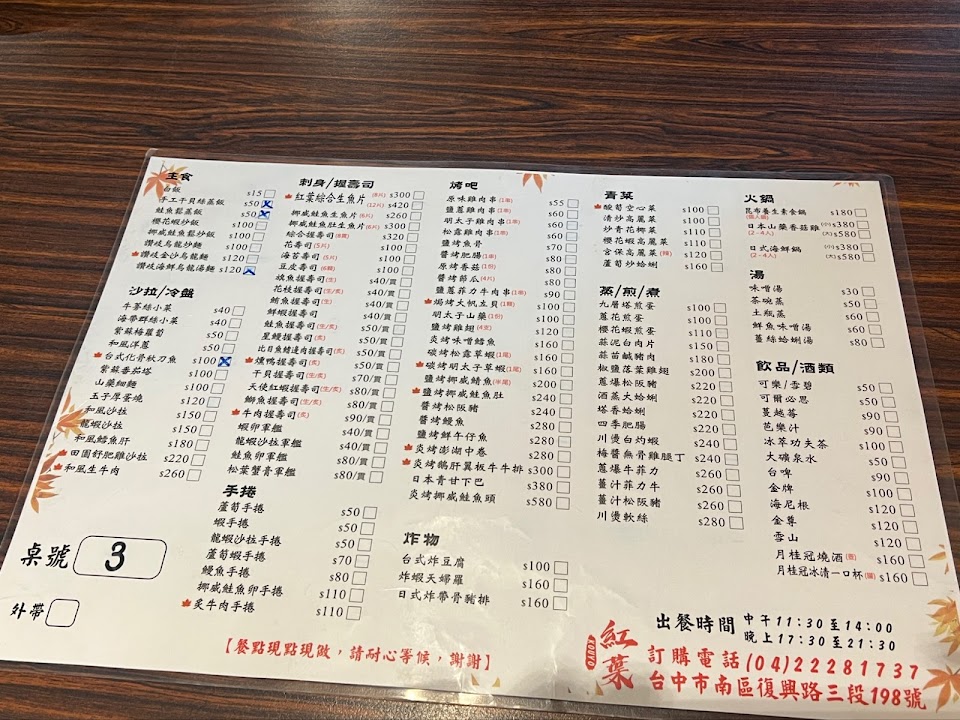 主食
白飯 $15
手工干貝絲蒸飯 $50
鮭魚鬆蒸飯 $50
櫻花蝦炒飯 $100
挪威鮭魚鬆炒飯 $100
讚岐烏龍炒麵 $100
讚岐金沙烏龍麵 $120
讚岐海鮮烏龍湯麵 $120
沙拉/冷盤
牛蒡絲小菜 $40
海帶群絲小菜 $40
紫蘇梅蘿蔔 $50
和風洋蔥 $50
台式化骨秋刀魚 $100
紫蘇番茄塔 $100
山藥細麵 $100
玉子厚蛋燒 $120
和風沙拉 $150
龍蝦沙拉 $150
和風鱈魚肝 $180
田園舒肥雞沙拉 $220
和風生牛肉 $260
桌號 3
外帶
刺身/握壽司
紅葉綜合生魚片 (8片) $300
(12片) $420
挪威鮭魚生魚片 (6片) $260
挪威鮭魚肚生魚片 (6片) $300
綜合握壽司 (8貫) $320
花壽司 (5片) $100
海苔壽司 (5片) $100
豆皮壽司 (6顆) $100
旗魚握壽司 (生/炙) $40/貫
花枝握壽司 (生/炙) $40/貫
鮪魚握壽司 (生) $40/貫
鮮蝦握壽司 $40/貫
鮭魚握壽司 (生/炙) $50/貫
星鰻握壽司 (炙) $50/貫
比目魚鰭邊肉握壽司 (炙) $50/貫
燻鴨握壽司 (炙) $50/貫
干貝握壽司 (生/炙) $70/貫
天使紅蝦握壽司 (生/炙) $80/貫
鰤魚握壽司 (生/炙) $80/貫
牛肉握壽司 (炙) $90/貫
蝦卵軍艦 $40/貫
龍蝦沙拉軍艦 $40/貫
鮭魚卵軍艦 $80/貫
松葉蟹膏軍艦 $80/貫
手捲
蘆筍手捲 $50
蝦手捲 $50
龍蝦沙拉手捲 $50
蘆筍蝦手捲 $70
鰻魚手捲 $80
挪威鮭魚卵手捲 $110
炙牛肉手捲 $110
【餐點現點現做，請耐心等候，謝謝】
烤吧
原味雞肉串 (1串) $55
鹽蔥雞肉串 (1串) $60
明太子雞肉串 (1串) $60
松露雞肉串 (1串) $60
鹽烤魚骨 $70
醬烤肥腸 (1串) $80
原烤香菇 (1份) $80
醬烤節瓜 (4片) $80
鹽蔥菲力牛肉串 (1串) $90
焗烤大帆立貝 (1顆) $100
明太子山藥 (1份) $100
鹽烤雞翅 (4支) $120
炎烤味噌鱈魚 $100
碳烤松露草蝦 (1尾) $160
碳烤明太子草蝦 (1尾) $160
鹽烤挪威鯖魚 (半尾) $200
鹽烤挪威鮭魚肚 $240
醬烤松阪豬 $240
醬烤鰻魚 $280
鹽烤鮮午仔魚 $280
炎烤澎湖中卷 $280
炎烤鵝肝翼板牛牛排 $300
日本青甘下巴 $380
炎烤挪威鮭魚頭 $580
炸物
台式炸豆腐 $100
炸蝦天婦羅 $160
日式炸帶骨豬排 $160
青菜
酸筍空心菜 $100
清炒高麗菜 $100
炒青花椰菜 $110
櫻花蝦高麗菜 $110
宮保高麗菜 (辣) $120
蘆筍炒蛤蜊 $160
蒸/煎/煮
九層塔煎蛋 $100
蔥花煎蛋 $100
櫻花蝦煎蛋 $110
蒜泥白肉片 $150
蒜苗鹹豬肉 $180
椒鹽落葉雞翅 $200
蔥爆松阪豬 $220
酒蒸大蛤蜊 $220
塔香蛤蜊 $220
四季肥腸 $220
川燙白灼蝦 $240
梅醬無骨雞腿丁 $240
蔥爆牛菲力 $260
薑汁菲力牛 $260
薑汁松阪豬 $260
川燙軟絲 $280
火鍋
昆布養生素食鍋 $180
(個人鍋)
日本山藥香菇雞 (小) $380
(2-4人) (大) $580
日式海鮮鍋 (小) $380
(2-4人) (大) $580
湯
味噌湯 $30
茶碗蒸 $50
土瓶蒸 $60
鮮魚味噌湯 $60
薑絲蛤蜊湯 $80
飲品/酒類
可樂/雪碧 $50
可爾必思 $50
蔓越莓 $90
芭樂汁 $90
冰萃功夫茶 $100
大礦泉水 $50
台啤 $90
金牌 $100
海尼根 $120
金尊 $120
雪山 $120
月桂冠燒酒 (壺) $160
月桂冠冰清一口杯 (罐) $160
紅葉
KOUYO
出餐時間 中午11:30至14:00
晚上17:30至21:30
訂購電話(04)22281737
台中市南區復興路三段198號